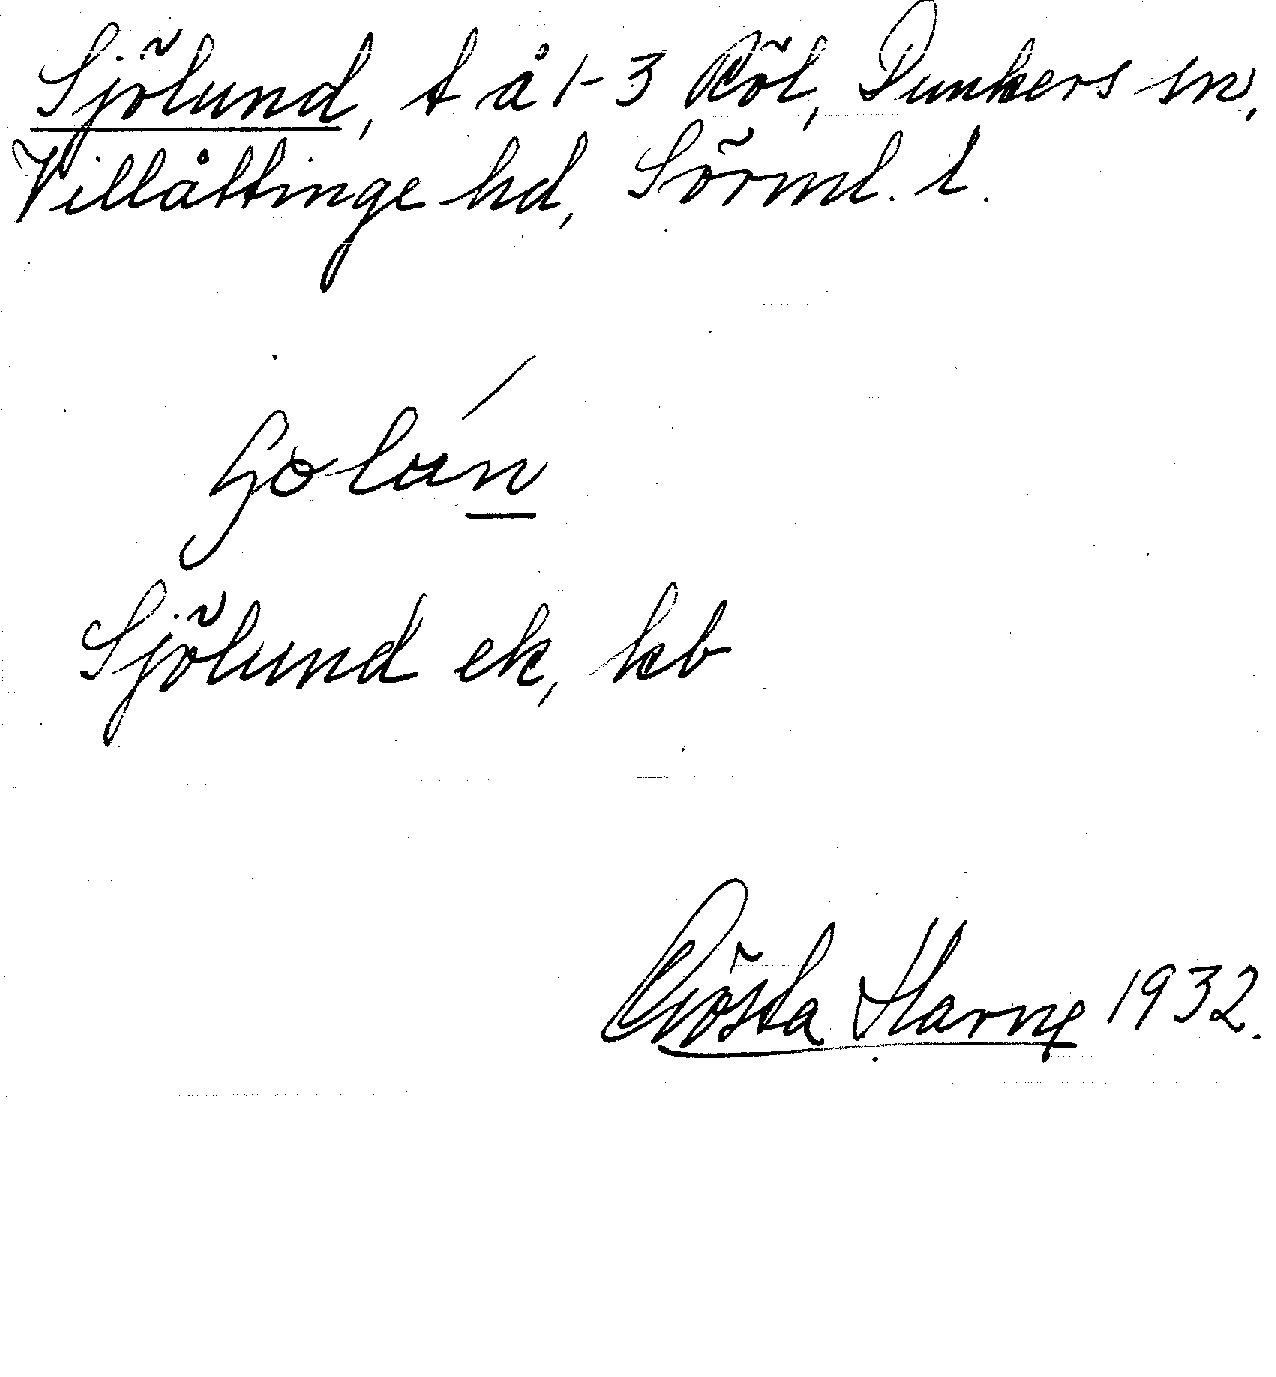 Sjölund, t å 1-3 Röl, Dunkers sn,
Villåttinge hd, Sörml. l.
Sjölund ek, kb
Gösta Harne 1932.